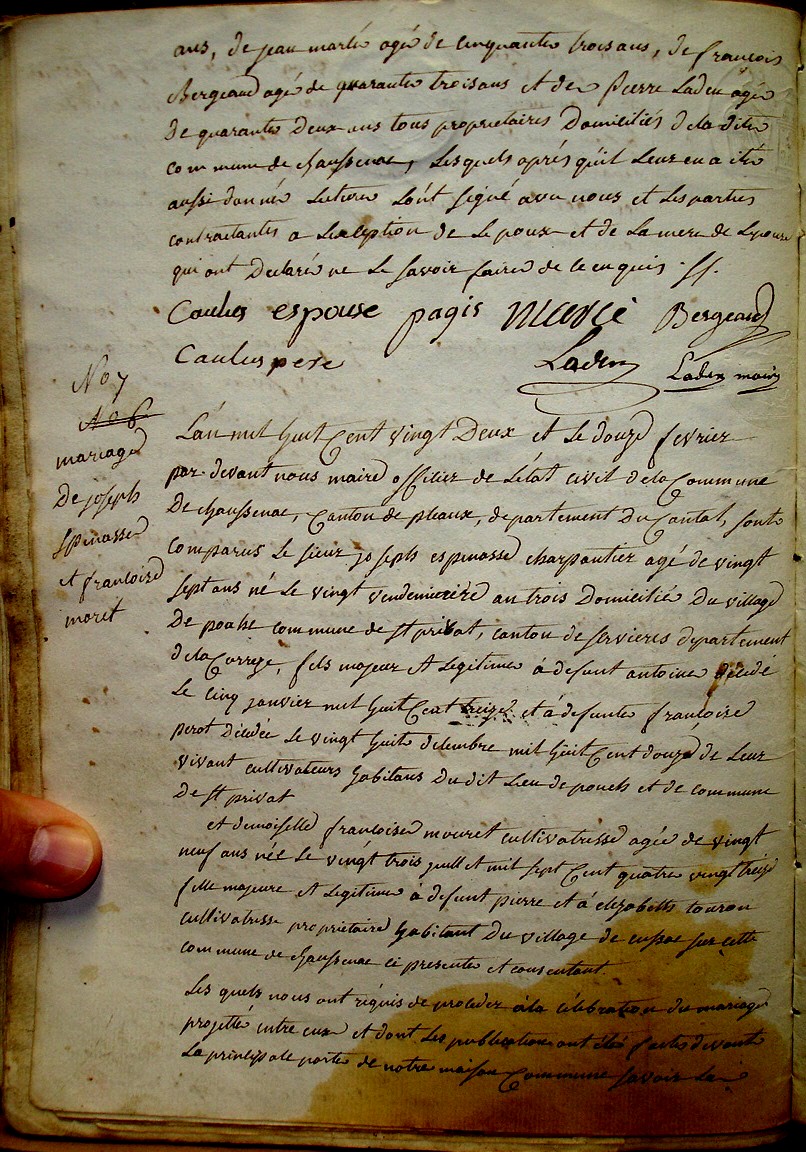 ans, de jean martin agé de cinquante trois ans, de francois
Bergeaud agé de quarante trois ans et de Pierre Laden agée
de quarante Deux ans tous proprietaires Domiciliés dela dite
commune de chaussenac, Lesquels aprés qu'il Leur en a été
aussi donnée Lecture L'ont signé avec nous et Les parties
contractantes a Lexception de Lepoux et de La mere de Lepouse
qui ont Declaré ne Le savoir faire de ce enquis .//.
Caulus espouse pagis Bergeaud
Caulus pere Laden Laden maire
No 7
No 6
mariage
De joseph
Spinasse
et francoise
moret
L'an mil huit Cent vingt Deux et Le douze fevrier
par-devant nous maire officier de L'état civil dela Commune
De chaussenac, Canton de pleaux, departement Du Cantal, sont
comparus Le sieur joseph espinasse charpantier agé de vingt
sept ans né Le vingt vendemiere an trois Domicilié Du village
De pouhe commune de st privat, canton de servieres departement
dela Correze, fils majeur et Legitime à defunt antoine décédé
Le cinq janvier mil huit Cent treize et à defunte francoise
perot décédée Le vingt huit decembre mil huit Cent douze de Leur
vivant cultivateurs habitans Du dit Lieu de pouch et de commune
De st privat
et demoiselle francoise mouret cultivatresse agée de vingt
neuf ans née Le vingt trois juillet mil sept Cent quatre vingt treize
fille majeure et Legitime à defunt pierre et à elizabeth touron
cultivatresse propriétaire habitant Du village de cussac sur cette
commune de chaussenac ci presente et consentant.
Les quels nous ont requis de proceder à la célébration du mariage
projetté entre eux et dont Les publications ont été faites devant
La principale porte de notre maison Commune savoir La